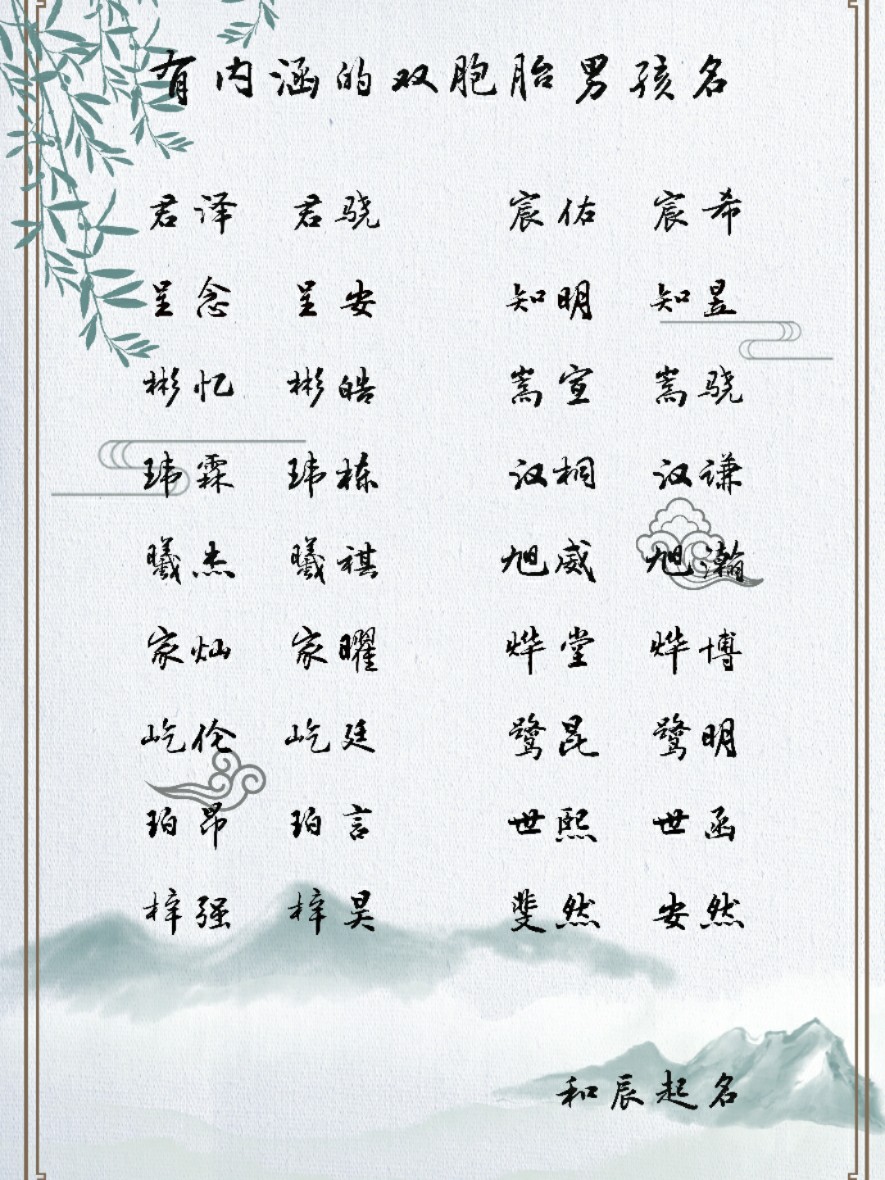 有内涵的双胞胎男孩名
君泽 君骁 宸佑 宸希
呈念 呈安 知明 知昱
彬忆 彬皓 嵩宣 嵩骁
玮霖 玮栋 汉桐 汉谦
曦杰 曦祺 旭威 旭瀚
家灿 家曜 烨堂 烨博
屹伦 屹廷 鹭昆 鹭明
珀昂 珀言 世熙 世函
梓强 梓昊 斐然 安然
和辰起名